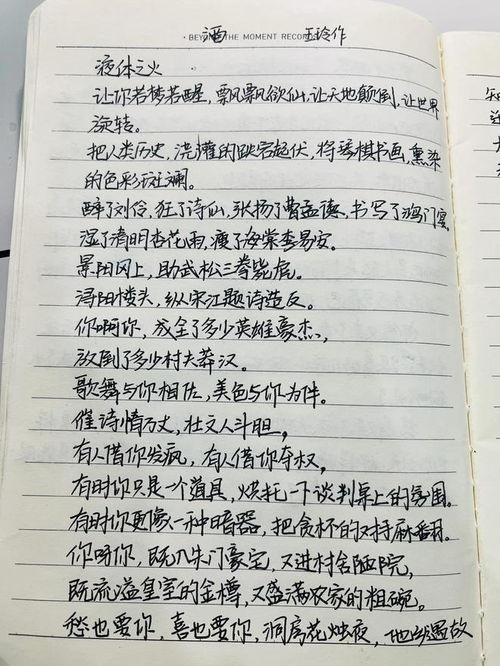 BEYOND THE MOMENT RECORD
酒 王玲作
液体之火
让你若梦若醒，飘飘欲仙，让天地颠倒，让世界
旋转。
把人类历史，浇灌的跌宕起伏，将琴棋书画，熏染
的色彩斑斓。
醉了刘伶，狂了诗仙，张扬了曹孟德，书写了鸿门宴。
湿了清明杏花雨，瘦了海棠李易安。
景阳冈上，助武松三拳毙虎。
浔阳楼头，纵宋江题诗造反。
你啊你，成全了多少英雄豪杰，
放倒了多少村夫莽汉。
歌舞与你相伍，美色与你为伴。
催诗情万丈，壮文人斗胆，
有人借你发疯，有人借你夺权，
有时你只是一个道具，烘托一下谈判桌上的氛围。
有时你更像一种暗器，把贪杯的对手麻翻。
你呀你，既入朱门豪宅，又进村舍陋院，
既流溢皇室的金樽，又盛满农家的粗碗。
愁也要你，喜也要你，洞房花烛夜，他乡遇故